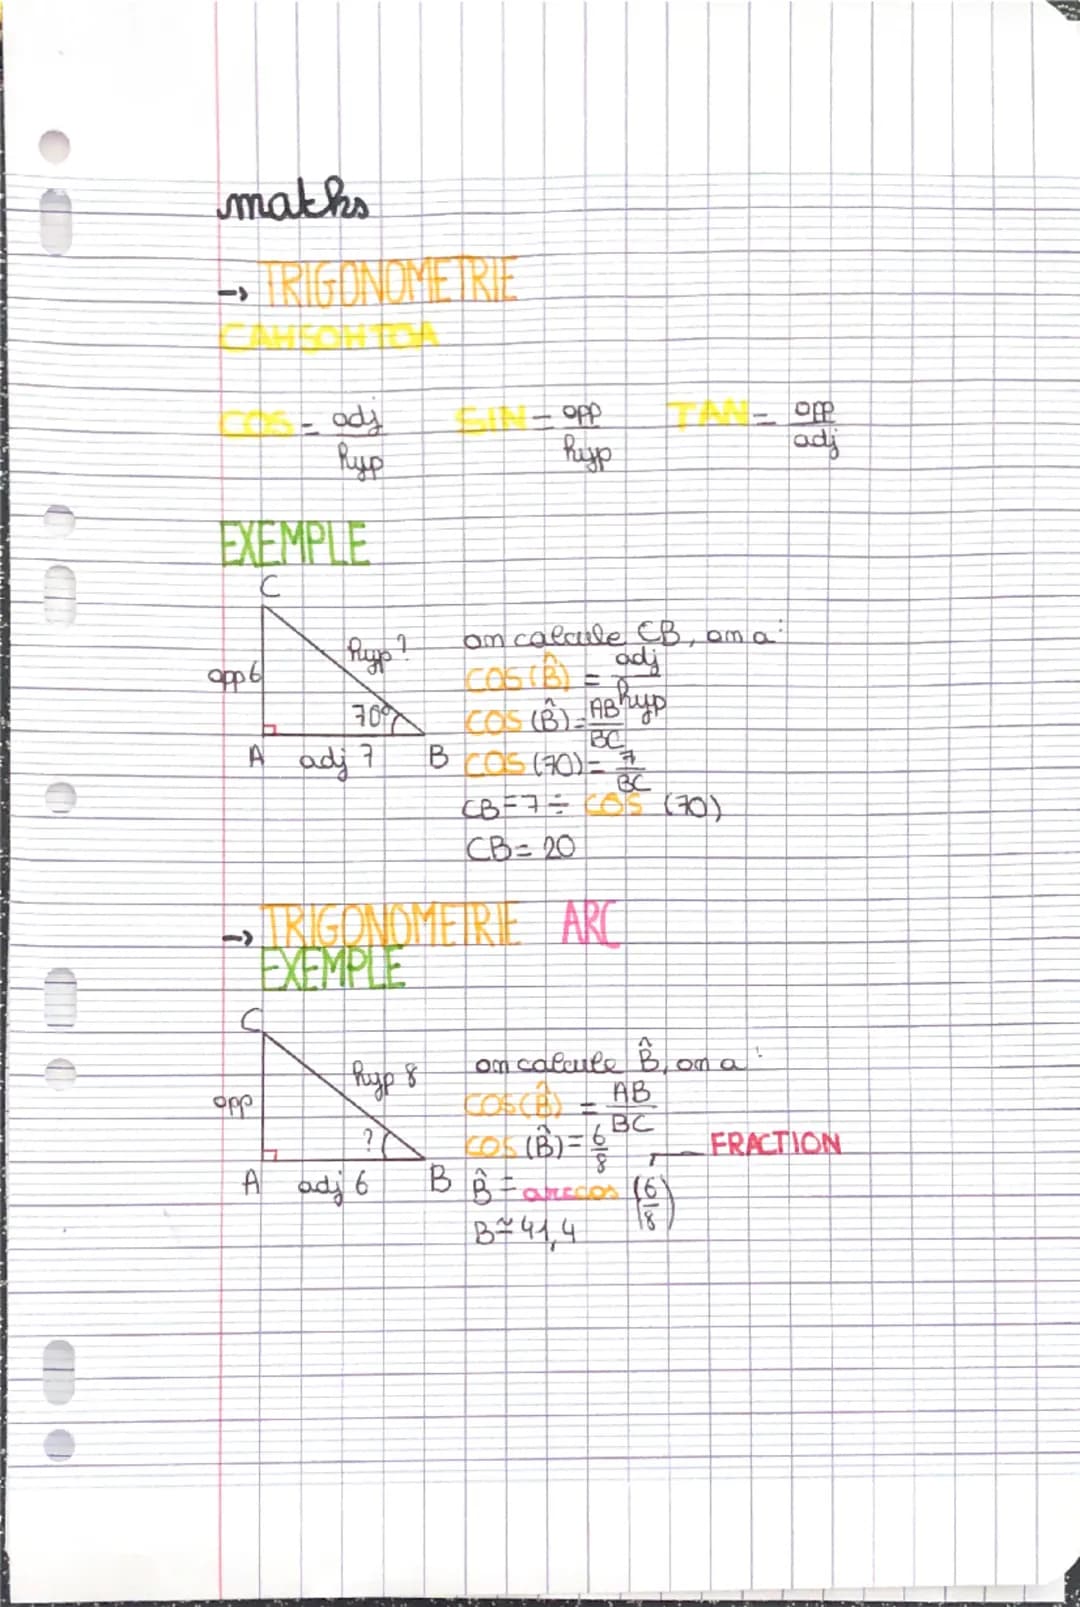 maths
→ TRIGONOMETRIE
CAHSOHTOA
COS = adj/hyp SIN = opp/hyp TAN = opp/adj
EXEMPLE
C
opp 6
hyp?
70°
A adj 7 B
on calcule CB, on a :
COS (B̂) = adj/hyp
COS (B̂) = AB/BC
COS (70) = 7/BC
CB = 7 ÷ COS (70)
CB = 20
→ TRIGONOMETRIE ARC
EXEMPLE
C
opp
hyp 8
?
A adj 6 B
on calcule B̂, on a :
COS (B̂) = AB/BC
COS (B̂) = 6/8
FRACTION
B̂ = arccos (6/8)
B ≃ 41,4